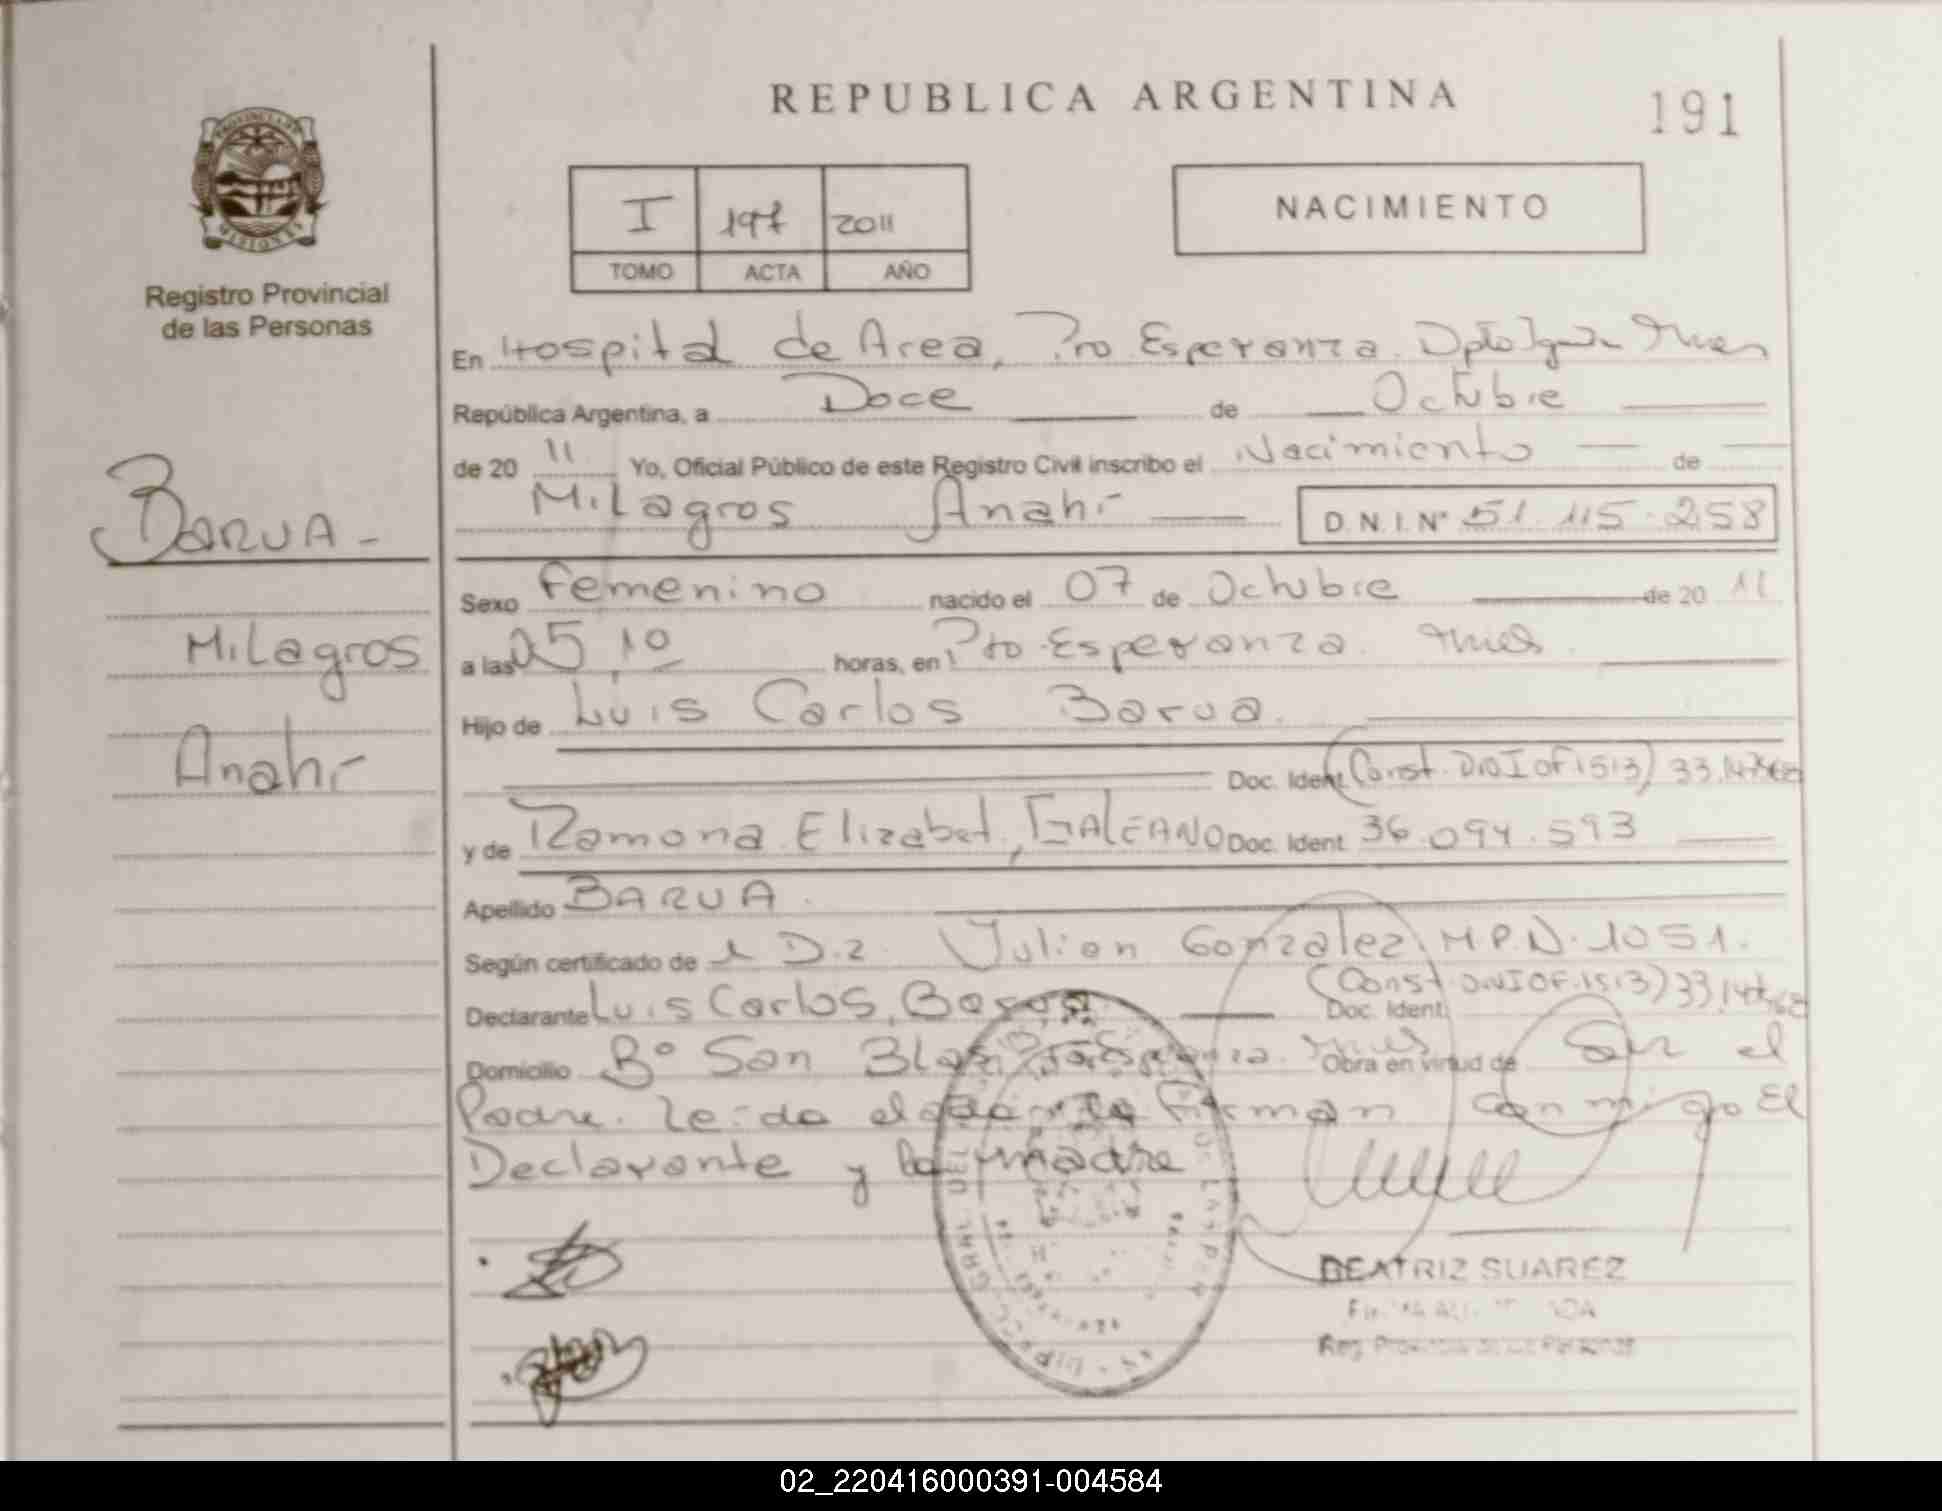 REPUBLICA ARGENTINA
191
PROVINCIA DE
MISIONES
Registro Provincial
de las Personas
I 197 2011
TOMO ACTA AÑO
NACIMIENTO
En Hospital de Area, Pto Esperanza. Dpto Iguazu
República Argentina, a Doce de Octubre
de 20 11 Yo, Oficial Público de este Registro Civil inscribo el Nacimiento de
Milagros Anahí D.N.I.Nº 51.115.258
BARUA -
Milagros
Anahí
Sexo Femenino nacido el 07 de Octubre de 20 11
a las 05,10 horas, en Pto. Esperanza.
Hijo de Luis Carlos Barua.
Doc. Ident. (Const. DNI OF 1513)
y de Ramona Elizabet, GALEANO Doc. Ident. 36.094.593
Apellido BARUA.
Según certificado de Julian Gonzalez M.P.N. 1051.
Declarante Luis Carlos, Barua Doc. Ident. (Const. DNI OF. 1513)
Domicilio Bº San Blas Obra en virtud de Ser el
Padre. Leida el acta Firman conmigo El
Declarante y la madre
BEATRIZ SUAREZ
Reg. Provincial de las Personas
02_220416000391-004584